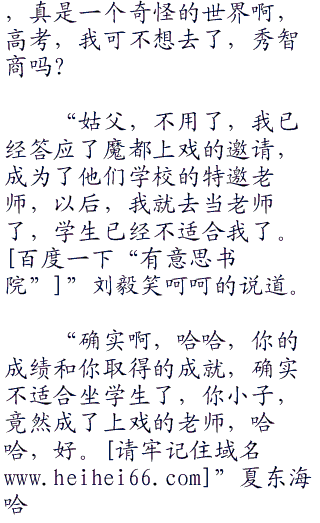 ，真是一个奇怪的世界啊，
高考，我可不想去了，秀智
商吗？
“姑父，不用了，我已
经答应了魔都上戏的邀请，
成为了他们学校的特邀老
师，以后，我就去当老师
了，学生已经不适合我了。
[百度一下“有意思书
院”]”刘毅笑呵呵的说道。
“确实啊，哈哈，你的
成绩和你取得的成就，确实
不适合坐学生了，你小子，
竟然成了上戏的老师，哈
哈，好。[请牢记住域名
www.heihei66.com]”夏东海
哈